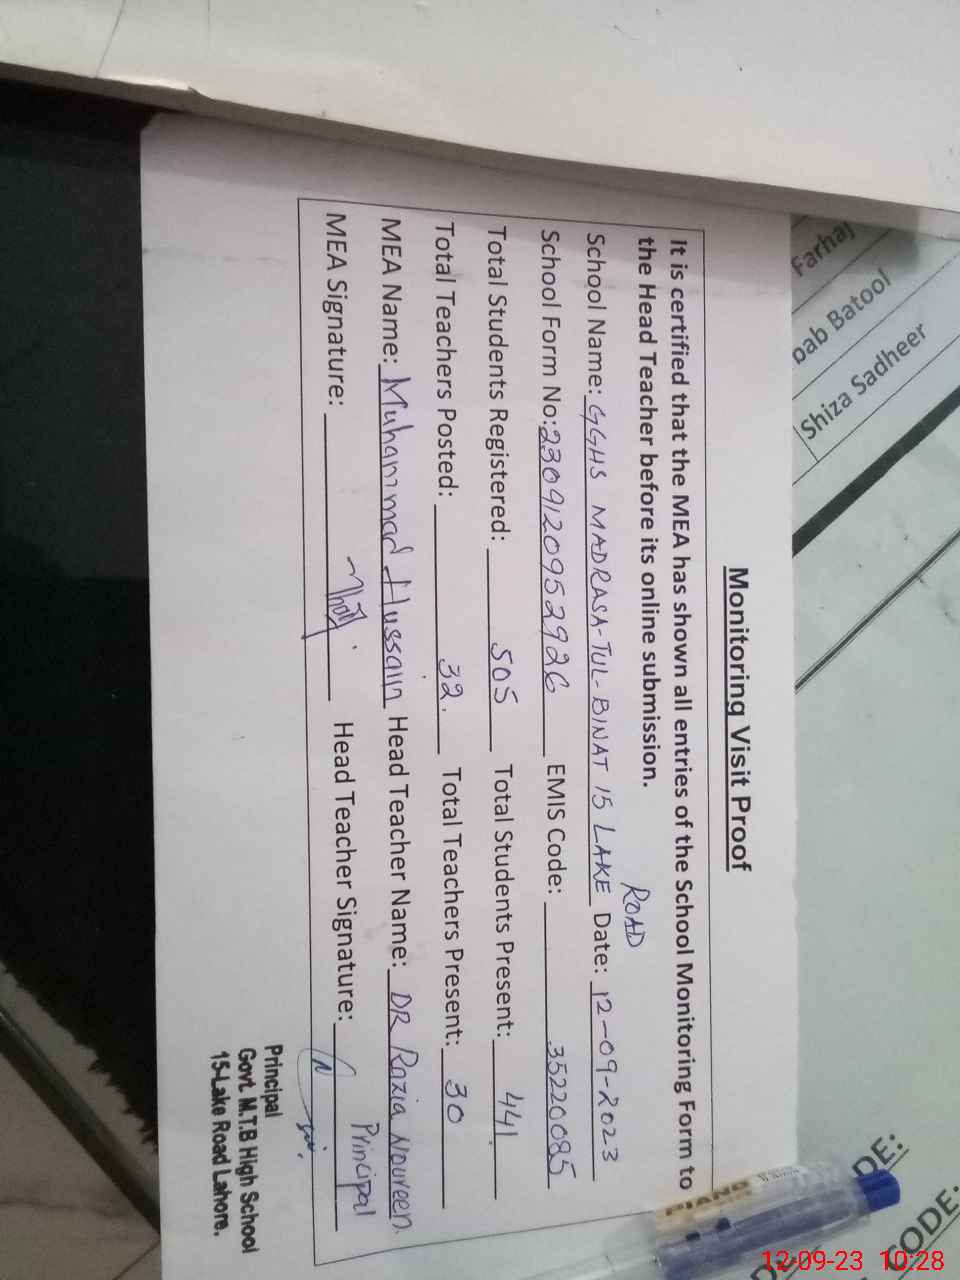 Monitoring Visit Proof
It is certified that the MEA has shown all entries of the School Monitoring Form to
the Head Teacher before its online submission.
ROAD
School Name: GGHS MADRASA-TUL-BINAT 15 LAKE Date: 12-09-2023
School Form No: 2309120952926 EMIS Code: 35220085
Total Students Registered: 505 Total Students Present: 441
Total Teachers Posted: 32. Total Teachers Present: 30
MEA Name: Muhammad Hussain Head Teacher Name: DR Razia Noureen.
Principal
MEA Signature: Head Teacher Signature:
Principal
Govt. M.T.B High School
15-Lake Road Lahore.
Farhaj
bab Batool
Shiza Sadheer
PIANO
DE:
CODE:
12-09-23 10:28